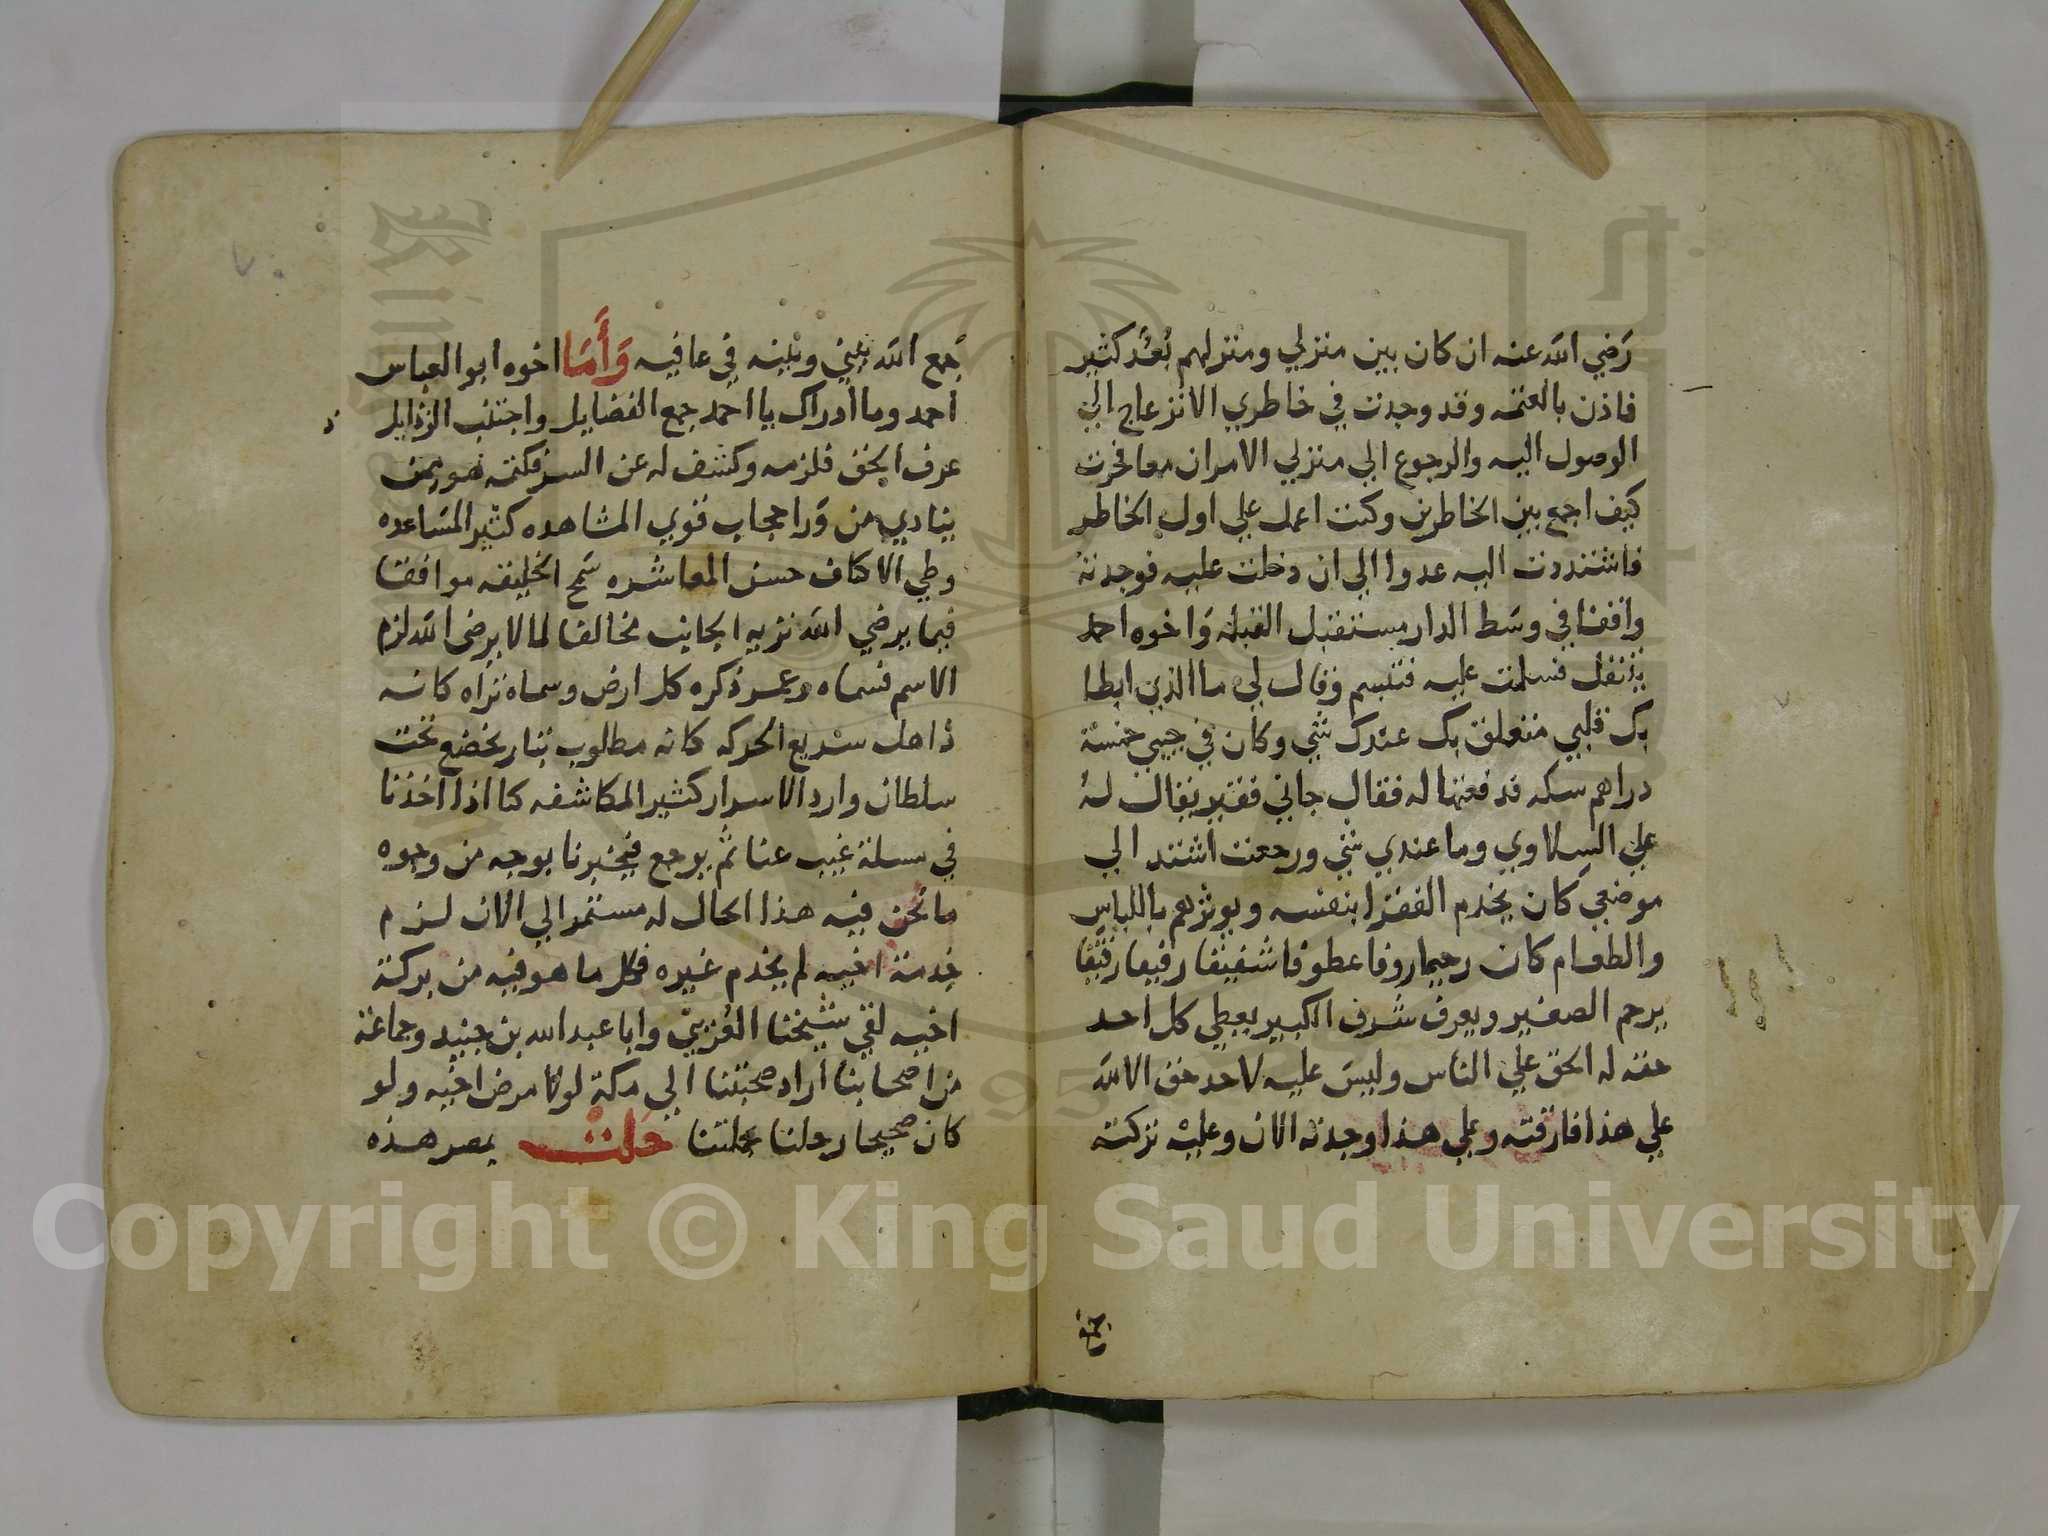 رَضي الله عنه ان كان بين منزلي ومنزلهم بُعْد كثير
فاذن بالعتمه وقد وجدت في خاطري الانزعاج الي
الوصول اليه والرجوع الي منزلي الامران معا فحرت
كيف اجمع بين الخاطرين وكنت اعمل علي اول الخاطر
فاشتددت اليه عدوا الي ان دخلت عليه فوجدته
واقفا في وسَط الدار مستقبل القبله وَاخوه احمد
يتنفل فسلمت عليه فتبسم وقال لي ما الذي ابطا
بك قلبي متعلق بك عندك شي وكان في جيبي خمسة
دراهم سكه فدفعتها له فقال جاني فقير يقال له
علي السلاوي وما عندي شي ورجعت اشتد الي
موضعي كان يخدم الفقرا بنفسه ويوثرهم باللباس
والطعام كان رحيما روفا عطوفا شفيقا رفيقا رقيقا
يرحم الصغير ويعرف شرف الكبير يعطي كل احد
حقه له الحق علي الناس وليسَ عليه لاحد حق الا لله
علي هذا فارقته وعلي هذا وجدته الان وعليه تركته
جمع
جَمع الله بيني وبينه في عافيه وَأَمَا اخوه ابو العباس
احمد وما ادراك يا احمد جمع الفضايل واجتنب الرذايل
عرف الحق فلزمه وكشف له عن السر فكتمه هو ممن
ينادي من وَرا حجاب قوي المشاهده كثير المسَاعده
وطي الاكناف حسن المعاشره سَمح الخليقه موافقا
فيما يرضي الله نزيه الجانب مخالفا لما لا يرضى الله لزم
الاسم فسماه وعمر ذكره كل ارض وسماه تراه كانه
ذاهل سريع الحركه كانه مطلوب بثار يخضع تحت
سلطان وارد الاسرار كثير المكاشفه كنا اذا اخذنا
في مسلة غيب عنا ثم يرجع فيخبرنا بوجه من وجوه
ما نحن فيه هذا الحال له مستمر الي الان لزم
خدمة اخيه لم يخدم غيره فكل ما هو فيه من بركة
اخيه لقي شيخنا العُريبيّ وابا عبد الله بن جنيد وجماعة
من اصحابنا اراد صحبتنا الي مكة لولا مرض اخيه ولو
كان صحيحا رحلنا بجملتنا حَلت بمصر هذه
Copyright © King Saud University